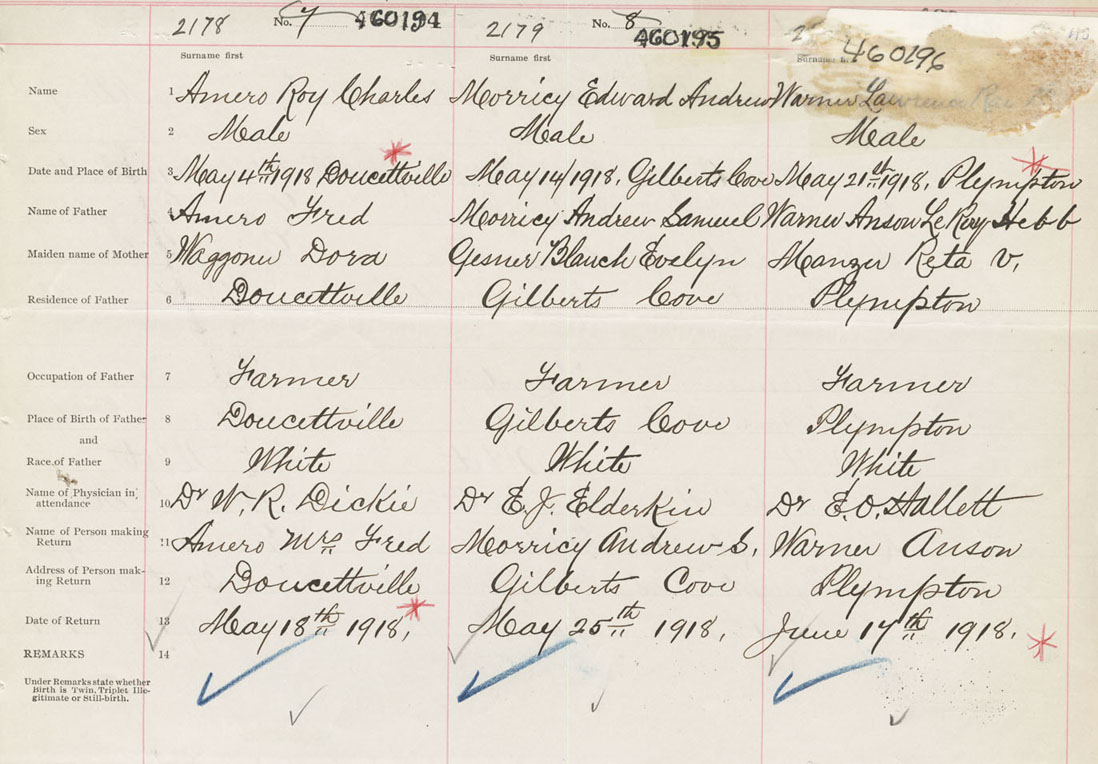 2178 No. 7 460194 2179 No. 8 460195 460196
Surname first Surname first
Name 1 Amero Roy Charles Morricy Edward Andrew Warner Lawrence
Sex 2 Male Male Male
Date and Place of Birth 3 May 4th 1918 Doucettville May 14/1918, Gilberts Cove May 21st 1918, Plympton
Name of Father 4 Amero Fred Morricy Andrew Samuel Warner Anson LeRoy Hebb
Maiden name of Mother 5 Waggoner Dora Gesner Blanch Evelyn Manzer Reta V.
Residence of Father 6 Doucettville Gilberts Cove Plympton
Occupation of Father 7 Farmer Farmer Farmer
Place of Birth of Father 8 Doucettville Gilberts Cove Plympton
and
Race of Father 9 White White White
Name of Physician in
attendance 10 Dr W. R. Dickie Dr E. J. Elderkin Dr E. O. Hallett
Name of Person making
Return 11 Amero Mrs Fred Morricy Andrew S. Warner Anson
Address of Person mak-
ing Return 12 Doucettville Gilberts Cove Plympton
Date of Return 13 May 18th 1918, May 25th 1918, June 17th 1918.
REMARKS 14
Under Remarks state whether
Birth is Twin, Triplet Ille-
gitimate or Still-birth.